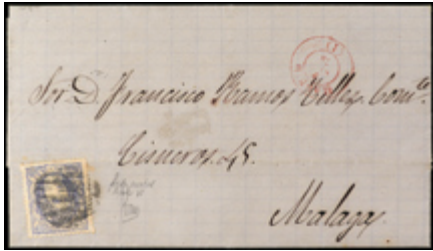 Sor. D. Francisco Ramos Tellez Comte.
Cisneros 48.
Malaga.